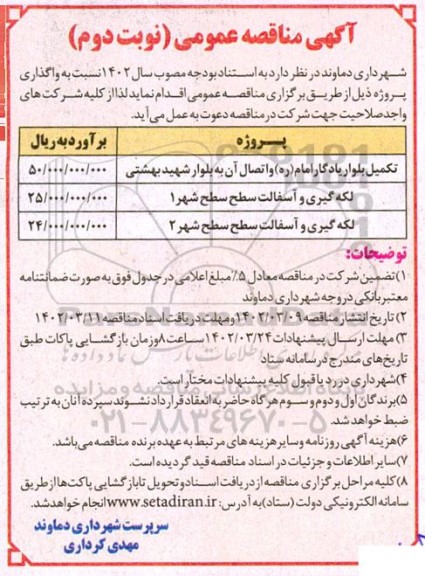 آگهی مناقصه عمومی (نوبت دوم)
شهرداری دماوند در نظر دارد به استناد بودجه مصوب سال ۱۴۰۲ نسبت به واگذاری
پروژه ذیل از طریق برگزاری مناقصه عمومی اقدام نماید لذا از کلیه شرکت های
واجد صلاحیت جهت شرکت در مناقصه دعوت به عمل می آید.
پروژه برآورد به ریال
تکمیل بلوار یادگار امام (ره) و اتصال آن به بلوار شهید بهشتی ۵۰/۰۰۰/۰۰۰/۰۰۰
لکه گیری و آسفالت سطح سطح شهر ۱ ۲۵/۰۰۰/۰۰۰/۰۰۰
لکه گیری و آسفالت سطح سطح شهر ۲ ۲۴/۰۰۰/۰۰۰/۰۰۰
توضیحات:
۱) تضمین شرکت در مناقصه معادل ۵٪ مبلغ اعلامی در جدول فوق به صورت ضمانتنامه
معتبر بانکی در وجه شهرداری دماوند
۲) تاریخ انتشار مناقصه ۱۴۰۲/۰۳/۰۹ و مهلت دریافت اسناد مناقصه ۱۴۰۲/۰۳/۱۱
۳) مهلت ارسال پیشنهادات ۱۴۰۲/۰۳/۲۴ ساعت ۸ و زمان بازگشایی پاکات طبق
تاریخ های مندرج در سامانه ستاد
۴) شهرداری در رد یا قبول کلیه پیشنهادات مختار است.
۵) برندگان اول و دوم و سوم هر گاه حاضر به انعقاد قرارداد نشوند سپرده آنان به ترتیب
ضبط خواهد شد.
۶) هزینه آگهی روزنامه و سایر هزینه های مرتبط به عهده برنده مناقصه می باشد.
۷) سایر اطلاعات و جزئیات در اسناد مناقصه قید گردیده است.
۸) کلیه مراحل برگزاری مناقصه از دریافت اسناد و تحویل تا بازگشایی پاکت ها از طریق
سامانه الکترونیکی دولت (ستاد) به آدرس: www.setadiran.ir انجام خواهد شد.
سرپرست شهرداری دماوند
مهدی کرداری
۰۲۱-۸۸۳۴۹۶۷۰-۵